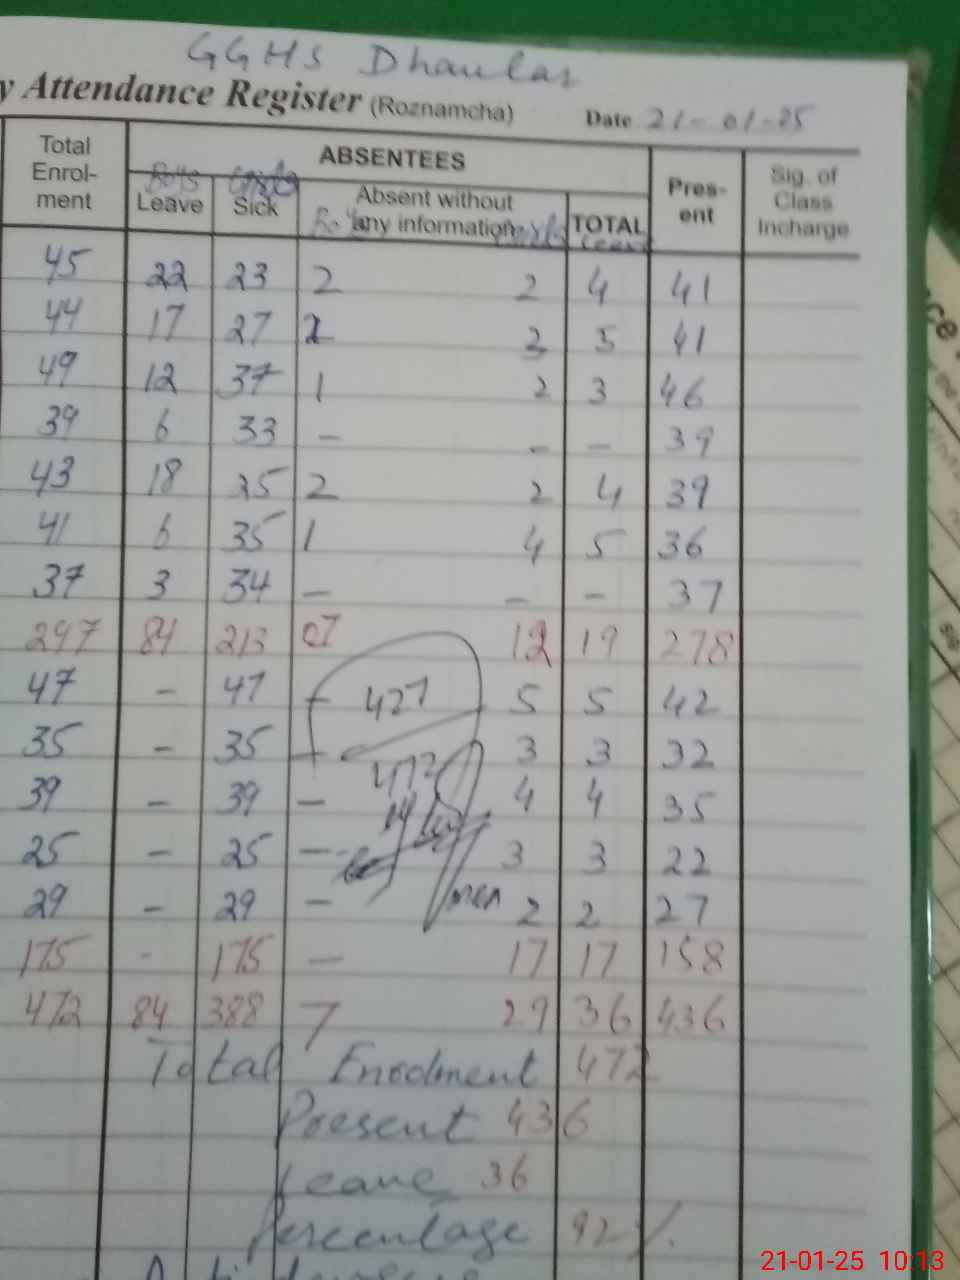 GGHS Dhaular
y Attendance Register (Roznamcha) Date 21-01-25
Total Enrol- ment ABSENTEES Pres- ent Sig. of Class Incharge
Boys Leave Girls Sick Absent without any information TOTAL Leave
45 22 23 2 2 4 41
44 17 27 3 41
49 12 37 1 2 3 46
39 6 33 - - - 39
43 18 25 2 2 4 39
41 6 35 1 4 5 36
37 3 34 - - - 37
297 84 213 07 12 19 278
47 - 47 - 427 5 5 42
35 - 35 - 3 3 32
472
39 - 39 - 4 4 35
25 - 25 - 3 3 22
29 - 29 - 2 2 27
175 - 175 - 17 17 158
472 84 388 7 29 36 436
Total Enrolment 472
Present 436
Leave 36
Percentage 92%
21-01-25 10:13